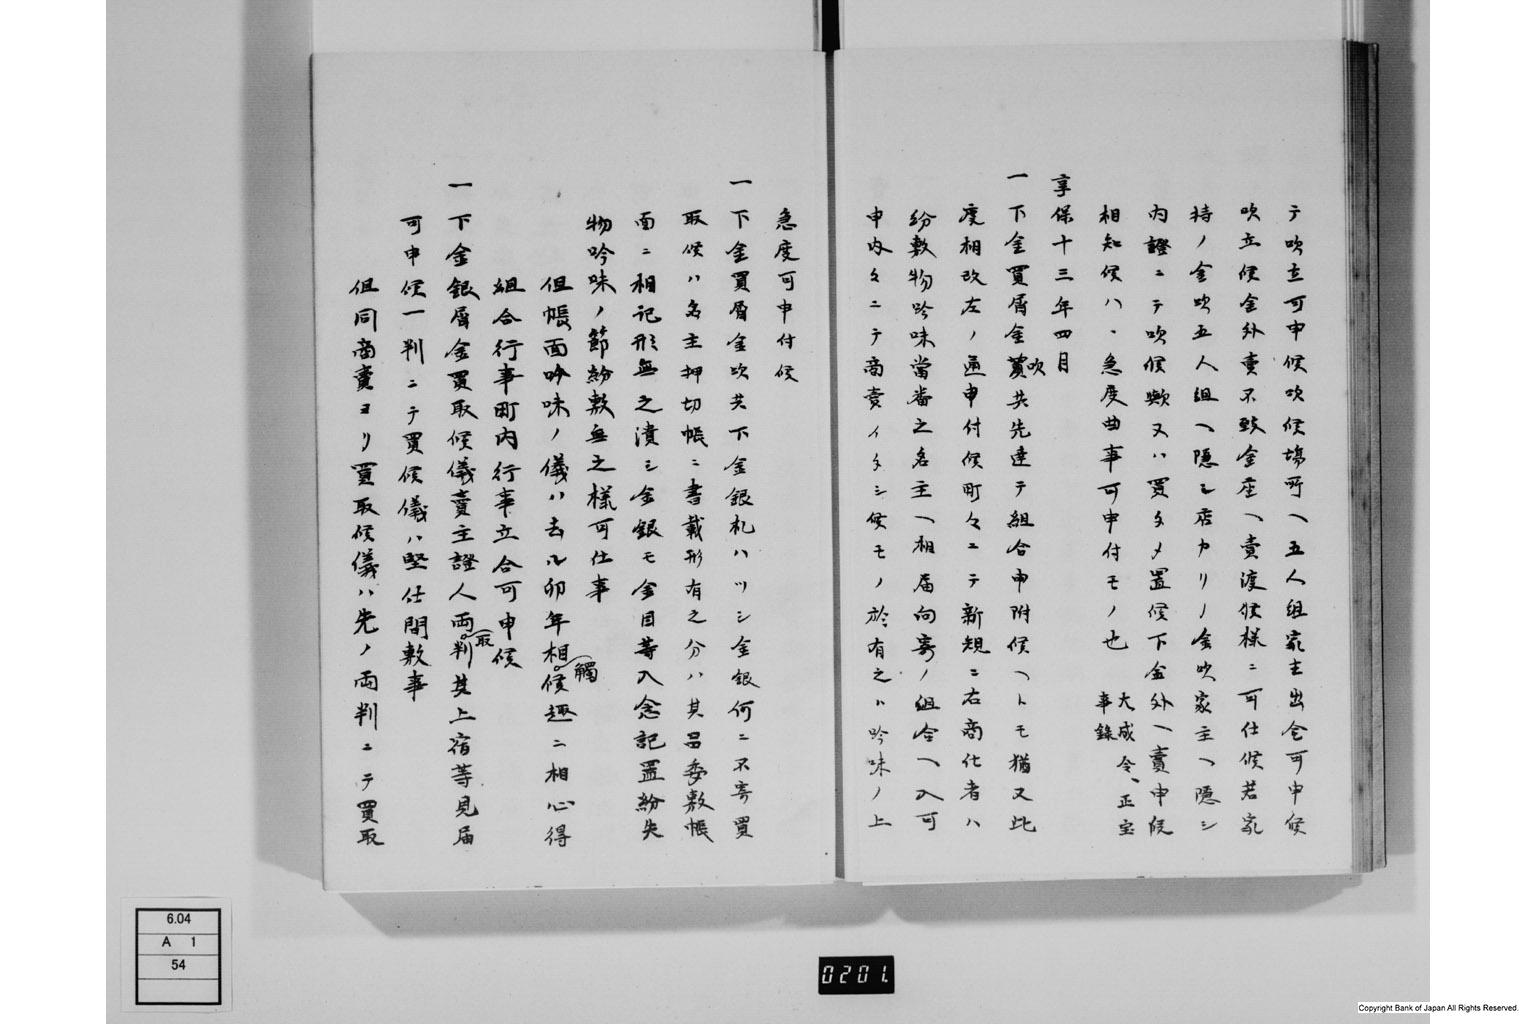 テ吹立可申候吹候場所ヘ五人組家主出会可申候
吹立候金外賣不致金座ヘ賣渡候様ニ可仕候若家
持ノ金吹五人組ヘ隠シ店カリノ金吹家主ヘ隠シ
内證ニテ吹候歟又ハ買タメ置候下金外ヘ賣申候段
相知候ハヽ急度曲事可申付モノ也
大成令、正宝
事錄
享保十三年四月
一下金買屑金買吹共先達テ組合申附候ヘトモ猶又此
度相改左ノ通申付候町々ニテ新規ニ右商化者ハ
紛敷物吟味當番之名主ヘ相届向寄ノ組合ヘ入可
申内々ニテ商賣イタシ候モノ於有之ハ吟味ノ上
急度可申付候
一下金買屑金吹共下金銀札ハツシ金銀何ニ不寄買
取候ハ名主押切帳ニ書載形有之分ハ其品委敷帳
面ニ相記形無之潰シ金銀モ金目等入念記置紛失
物吟味ノ節紛敷無之様可仕事
但帳面吟味ノ儀ハ去ル卯年相觸候趣ニ相心得
組合行事町内行事立合可申候
一下金銀屑金買取候儀賣主證人両判取其上宿等見届
可申候一判ニテ買候儀ハ堅仕間敷事
但同商賣ヨリ買取候儀ハ先ノ両判ニテ買取
6.04
A 1
54
0201.
Copyright Bank of Japan All Rights Reserved.